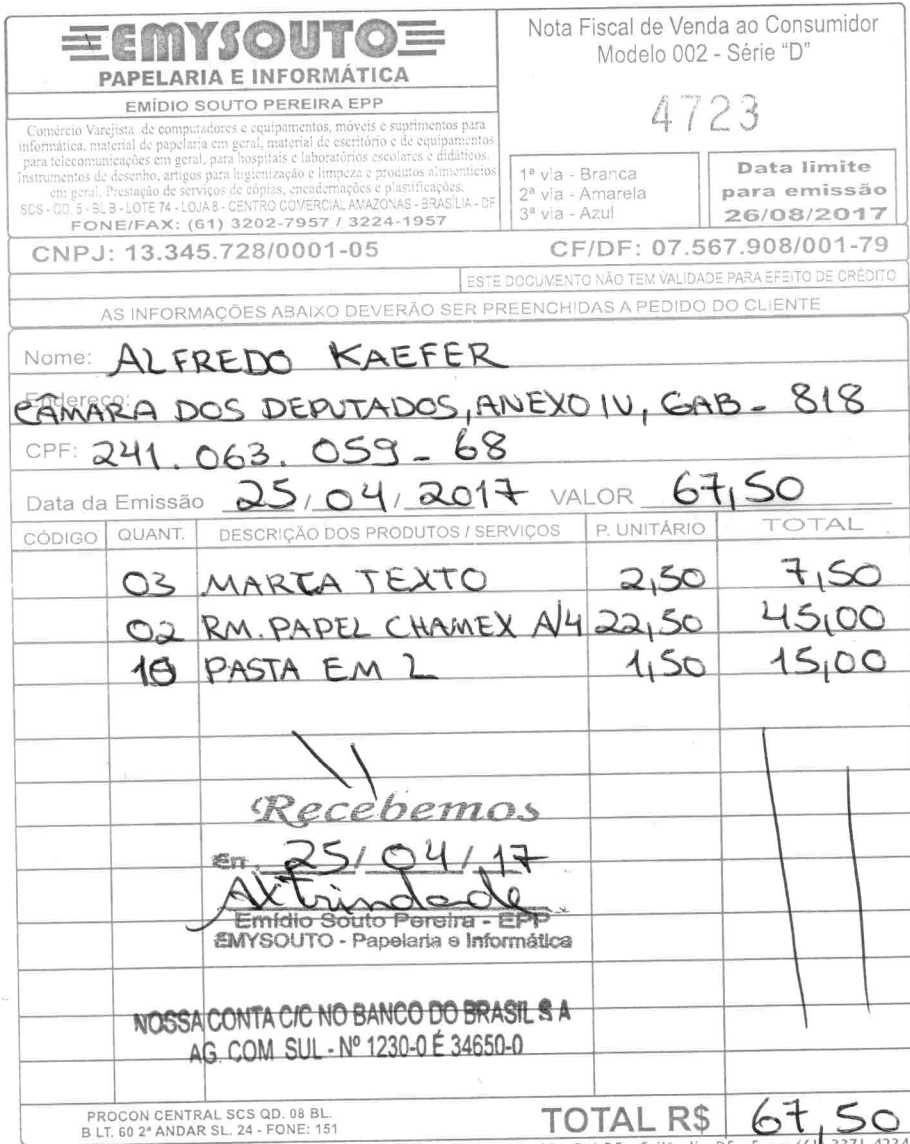 EMYSOUTO
PAPELARIA E INFORMÁTICA
EMÍDIO SOUTO PEREIRA EPP
Comércio Varejista de computadores e equipamentos, móveis e suprimentos para
informática, material de papelaria em geral, material de escritório e de equipamentos
para telecomunicações em geral, para hospitais e laboratórios escolares e didáticos.
Instrumentos de desenho, artigos para higienização e limpeza e produtos alimentícios
em geral. Prestação de serviços de cópias, encadernações e plastificações.
SCS - QD. 5 - BL B - LOTE 74 - LOJA 8 - CENTRO COMERCIAL AMAZONAS - BRASÍLIA - DF
FONE/FAX: (61) 3202-7957 / 3224-1957
Nota Fiscal de Venda ao Consumidor
Modelo 002 - Série “D”
4723
1ª via - Branca
2ª via - Amarela
3ª via - Azul
Data limite
para emissão
26/08/2017
CNPJ: 13.345.728/0001-05 CF/DF: 07.567.908/001-79
ESTE DOCUMENTO NÃO TEM VALIDADE PARA EFEITO DE CRÉDITO
AS INFORMAÇÕES ABAIXO DEVERÃO SER PREENCHIDAS A PEDIDO DO CLIENTE
Nome: ALFREDO KAEFER
Endereço:
CÂMARA DOS DEPUTADOS, ANEXO IV, GAB - 818
CPF: 241.063.059-68
Data da Emissão 25/04/2017 VALOR 67,50
CÓDIGO QUANT. DESCRIÇÃO DOS PRODUTOS / SERVIÇOS P. UNITÁRIO TOTAL
03 MARCA TEXTO 2,50 7,50
02 RM. PAPEL CHAMEX A/4 22,50 45,00
10 PASTA EM L 1,50 15,00
Recebemos
Em 25/04/17
AXTrindade
Emídio Souto Pereira - EPP
EMYSOUTO - Papelaria e Informática
NOSSA CONTA C/C NO BANCO DO BRASIL S A
AG. COM SUL - Nº 1230-0 É 34650-0
PROCON CENTRAL SCS QD. 08 BL.
B LT. 60 2ª ANDAR SL. 24 - FONE: 151
TOTAL R$ 67,50